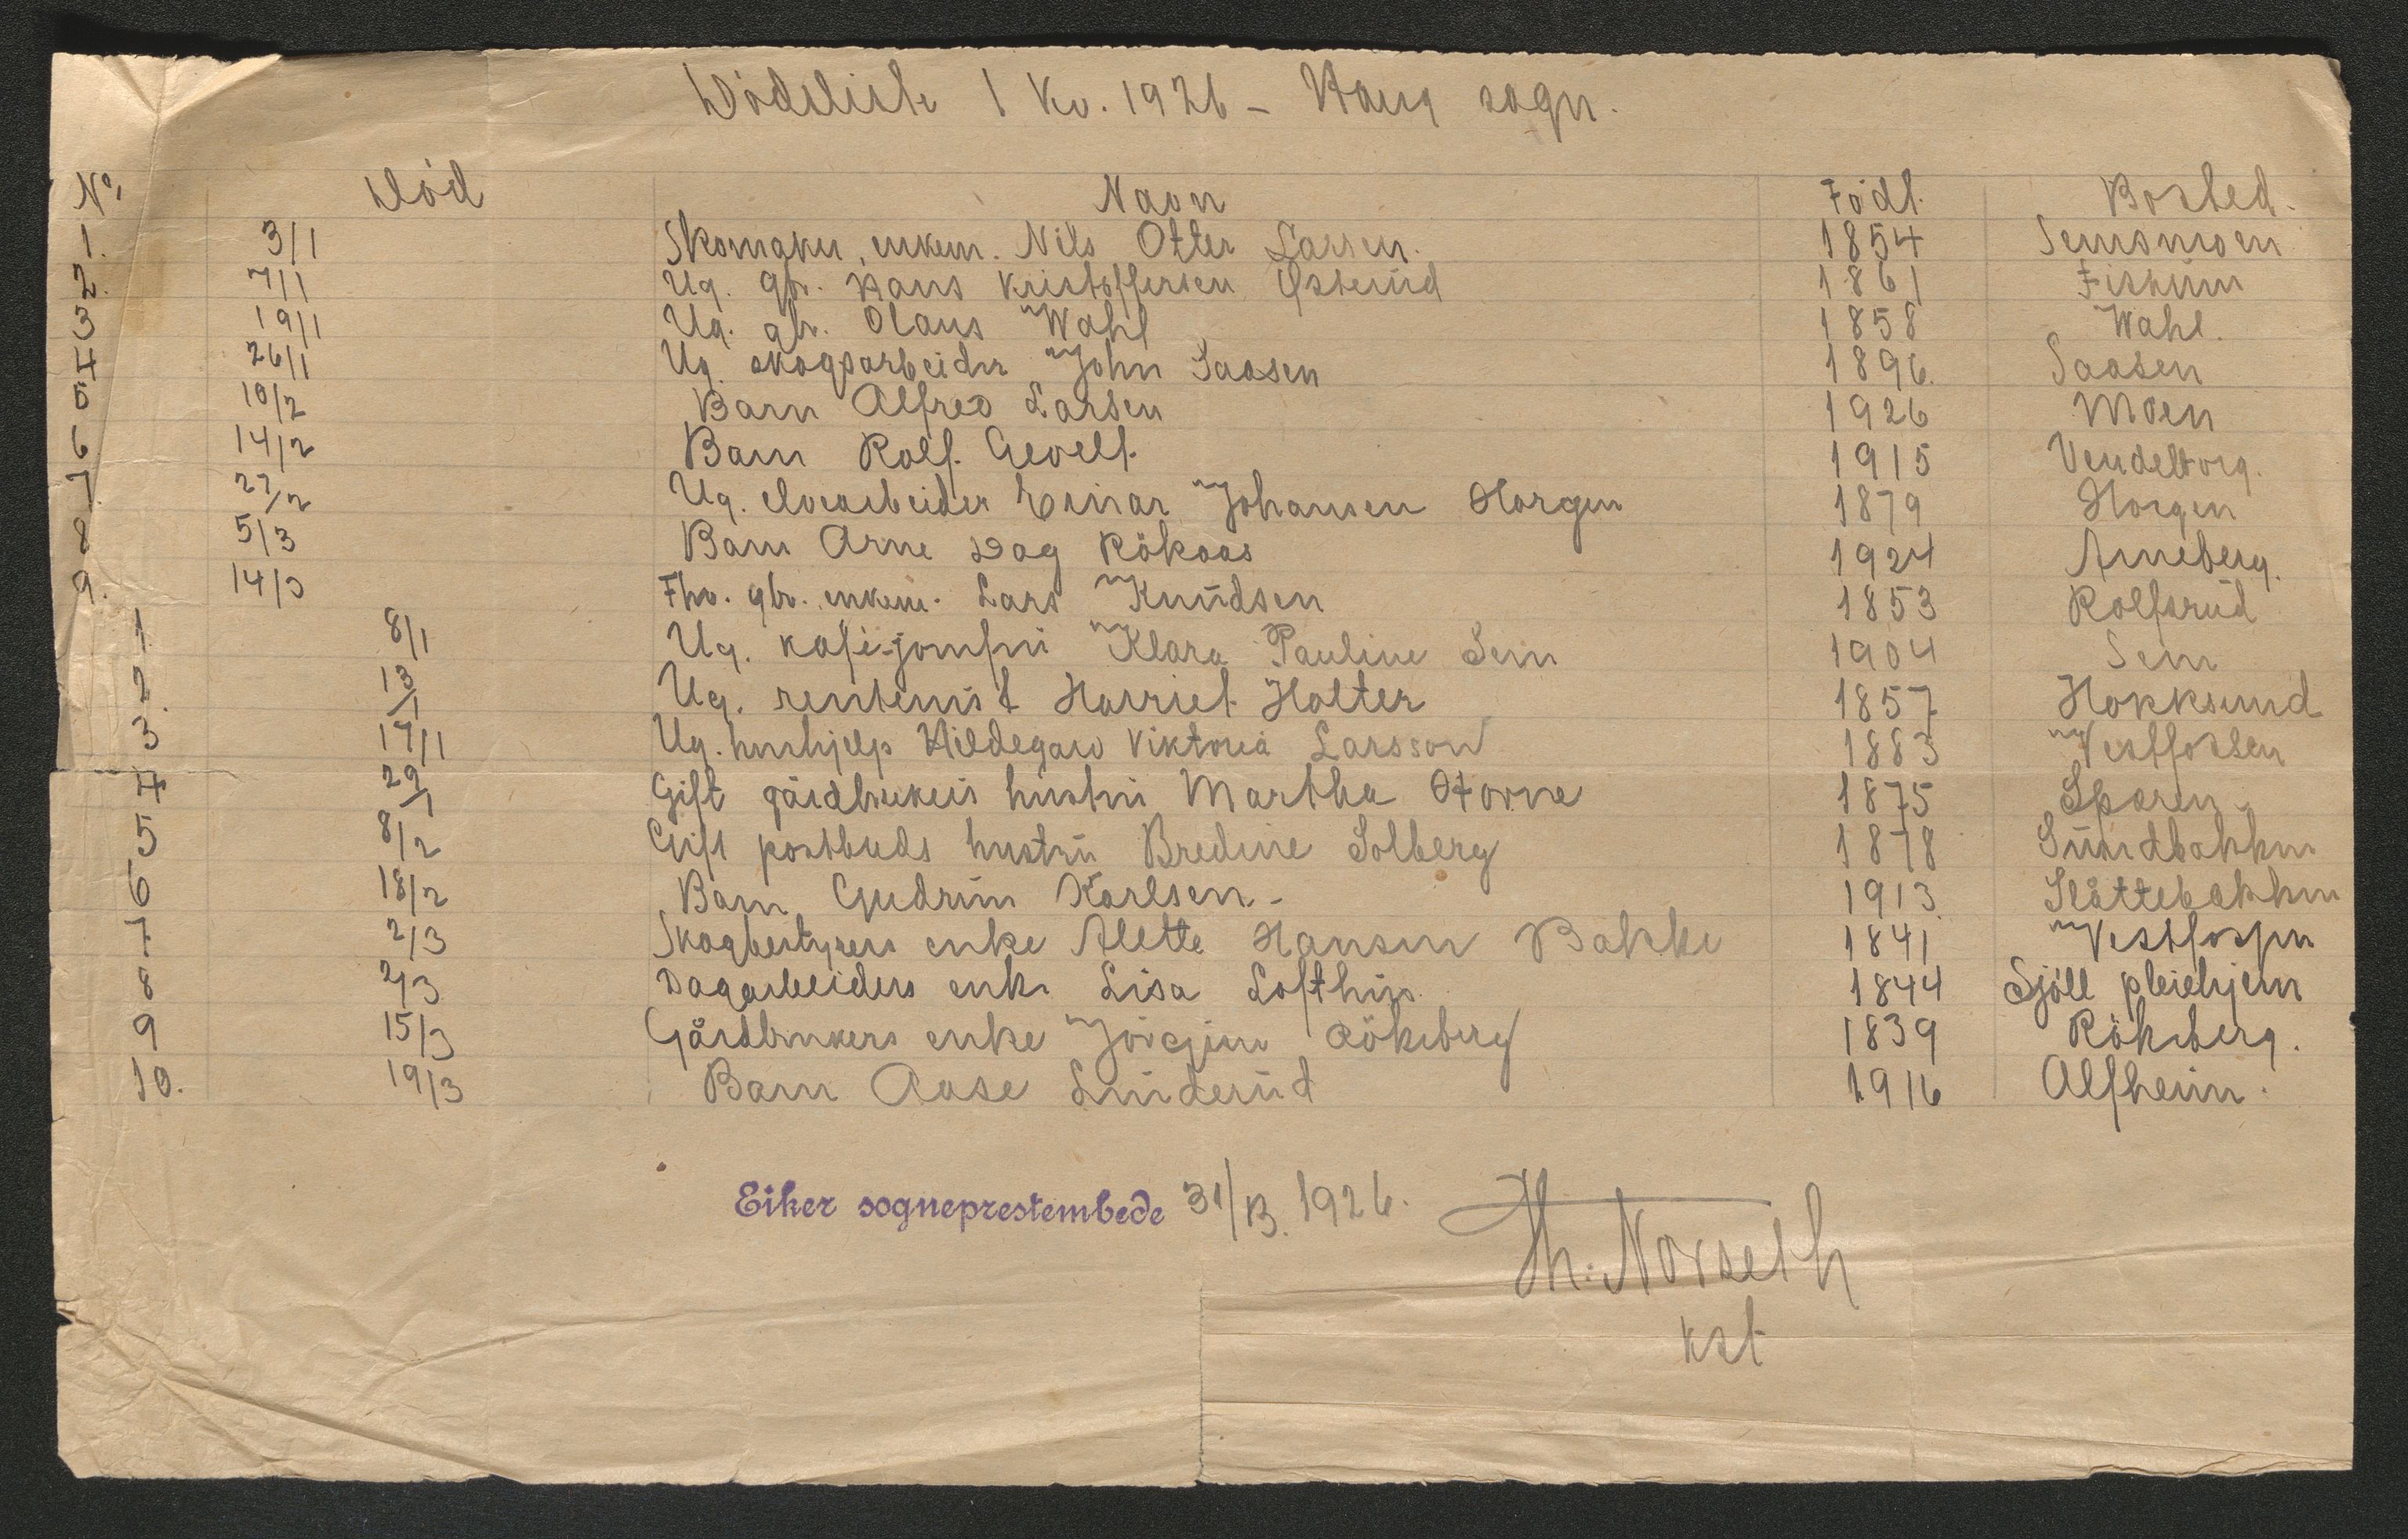 Dödsliste 1 Kv. 1926 - Haug sogn.
No. Död Navn Födt. Bosted.
1. 3/1 Skomaker, enkem. Nils Otter Larsen. 1854 Semsmoen
2. 7/1 Ug. gbr. Hans Kristoffersen Østerud 1861 Fiskum
3 19/1 Ug. gbr. Olaus Wahl 1858 Wahl.
4 26/1 Ug. skogsarbeider John Saasen 1896. Saasen
5 10/2 Barn Alfred Larsen 1926 Moen
6 14/2 Barn Rolf Gevelt 1915 Vendelborg.
7. 27/2 Ug. elvearbeider Einar Johansen Horgen 1879 Horgen
8 5/3 Barn Arne Dag Kökaas 1924 Arneberg.
9. 14/3 Fhv. gbr. enkem. Lars Knudsen 1853 Rolfsrud
1 8/1 Ug. kafé-jomfru Klara Pauline Sem 1904 Sem
2. 13/1 Ug. rentenist Harriet Holter 1857 Hokksund
3 17/1 Ug. hushjelp Hildegard Viktoria Larsson 1883 Vestfossen
4 29/1 Gift gårdbrukers hustru Martha Horne 1875 Sparen
5 8/2 Gift postbuds hustru Bredine Solberg 1878 Sundbakken
6 18/2 Barn Gudrun Karlsen - 1913. Slåttebakken
7 2/3 Skogbestyrers enke Alette Hansen Bakke 1841 Vestfossen
8 2/3 Dagarbeiders enke Lisa Lofthus. 1844 Sjöll pleiehjem
9 15/3 Gårdbrukers enke Jörgine Rökeberg 1839 Rökeberg.
10. 19/3 Barn Aase Linderud 1916 Alfheim.
Eiker sogneprestembede 31/3. 1926.
Th. Norseth
kst